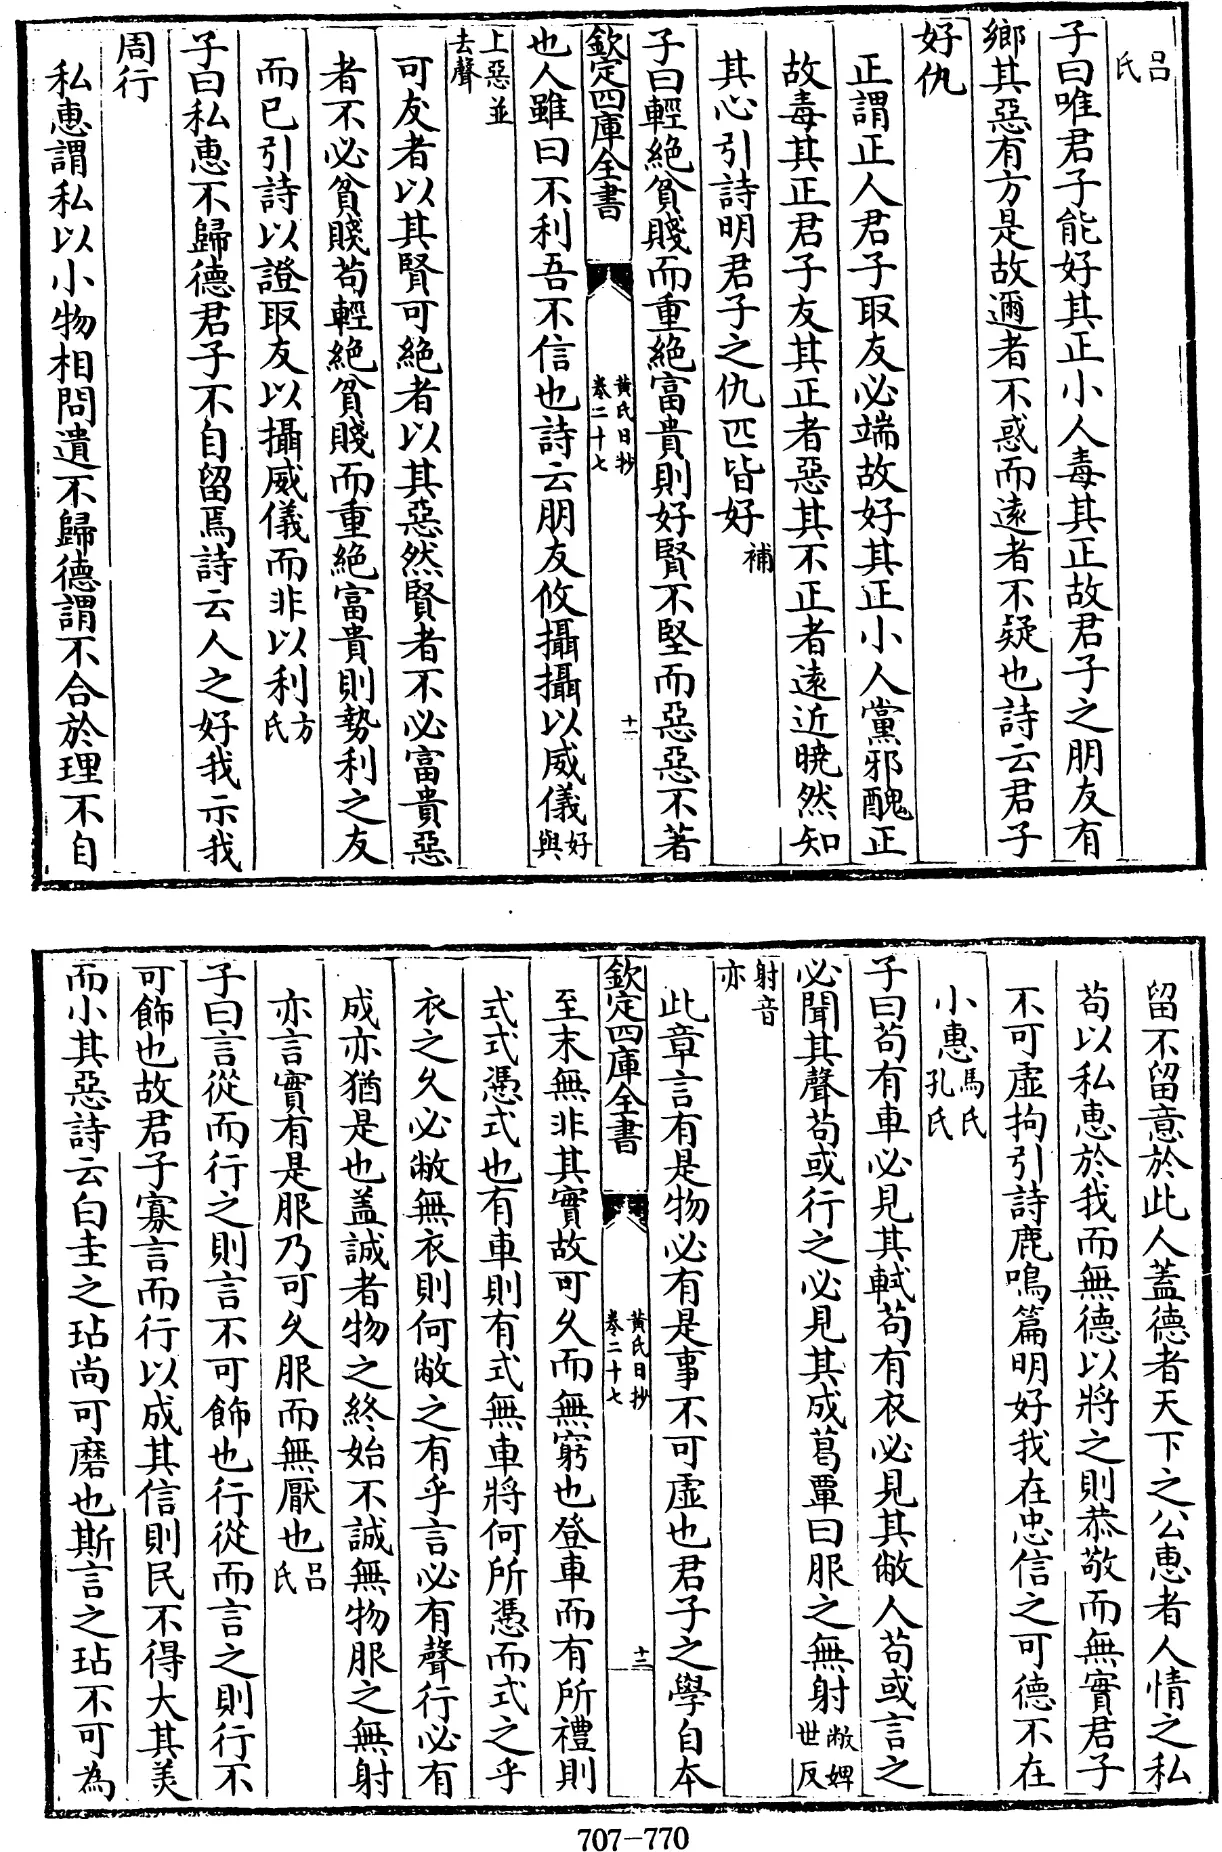 呂氏
子曰唯君子能好其正小人毒其正故君子之朋友有
鄉其惡有方是故邇者不惑而遠者不疑也詩云君子
好仇
正謂正人君子取友必端故好其正小人黨邪醜正
故毒其正君子友其正者惡其不正者遠近曉然知
其心引詩明君子之仇匹皆好補
子曰輕絶貧賤而重絶富貴則好賢不堅而惡惡不著
欽定四庫全書
黃氏日抄
卷二十七
十一
也人雖曰不利吾不信也詩云朋友攸攝攝以威儀好與
上惡並去聲
可友者以其賢可絶者以其惡然賢者不必富貴惡
者不必貧賤苟輕絶貧賤而重絶富貴則勢利之友
而已引詩以證取友以攝威儀而非以利方氏
子曰私惠不歸德君子不自留焉詩云人之好我示我
周行
私惠謂私以小物相問遺不歸德謂不合於理不自
留不留意於此人蓋德者天下之公惠者人情之私
苟以私惠於我而無德以將之則恭敬而無實君子
不可虛拘引詩鹿鳴篇明好我在忠信之可德不在
小惠馬氏孔氏
子曰苟有車必見其軾苟有衣必見其敝人苟或言之
必聞其聲苟或行之必見其成葛覃曰服之無射敝婢世反
射音亦
此章言有是物必有是事不可虛也君子之學自本
欽定四庫全書
黃氏日抄
卷二十七
十二
至末無非其實故可久而無窮也登車而有所禮則
式式憑式也有車則有式無車將何所憑而式之乎
衣之久必敝無衣則何敝之有乎言必有聲行必有
成亦猶是也盖誠者物之終始不誠無物服之無射
亦言實有是服乃可久服而無厭也呂氏
子曰言從而行之則言不可飾也行從而言之則行不
可飾也故君子寡言而行以成其信則民不得大其美
而小其惡詩云白圭之玷尚可磨也斯言之玷不可為
707-770